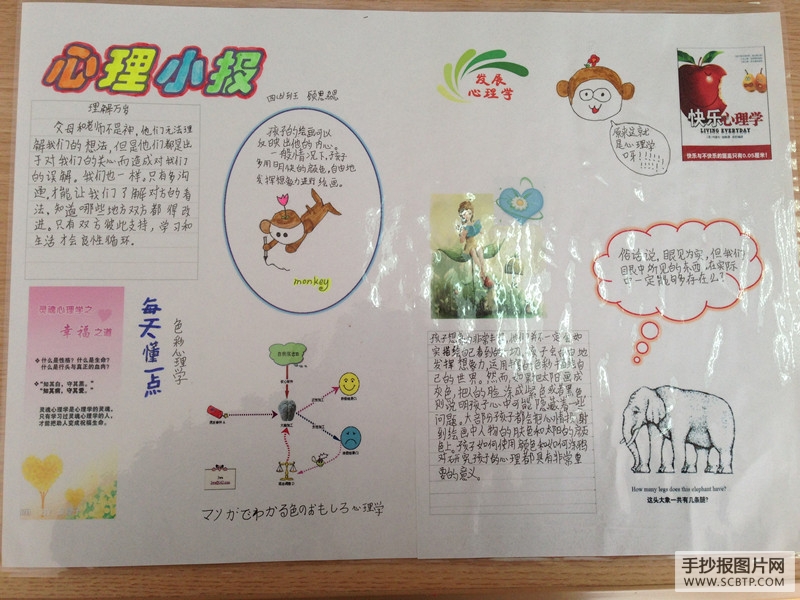 心理小报
四(4)班
理解万岁
父母和老师不是神,他们无法理
解我们的想法,但是他们都是出
于对我们的关心而造成对我们
的误解。我们也一样。只有多沟
通,才能让我们了解对方的看
法,知道哪些地方双方都得改
进。只有双方彼此支持,学习和
生活才会良性循环。
孩子的绘画可以
反映出他的内心。
一般情况下,孩子
多用明快的颜色,自由地
发挥想象力进行绘画。
monkey
灵魂心理学之
幸福之道
什么是性格?什么是生命?
什么是行头与真正的血肉?
"知其白,守其黑。"
"知其荣,守其辱。"
灵魂心理学是心理学的灵魂,
只有学习过灵魂心理学的人,
才能把助人变成祝福生命。
每天懂一点
色彩心理学
マンガでわかる色のおもしろ心理学
发展
心理学
原来这就
是心理学
呀!!!!!!
快乐心理学
LIVING EVERYDAY
快乐与不快乐的距离只有0.05厘米!
俗话说,眼见为实,但我们
眼中所见的东西,在实际
中一定能够多存在么?
孩子想象力非常丰富,他们并不一定会如
实描绘自己看到的
发挥想象力,运用
己的世界。然而,如果把太阳画成
灰色,把人的脸涂成紫色或者黑色,
则说明孩子心中可能隐藏着一些
问题。大部分孩子都会把心情投
射到绘画中人物的肤色和太阳的颜
色上。孩子如何使用颜色和如何涂抹,
对研究孩子的心理都具有非常重
要的意义。
How many legs does this elephant have?
这头大象一共有几条腿?
手抄报图片网
WWW.SCBTP.COM